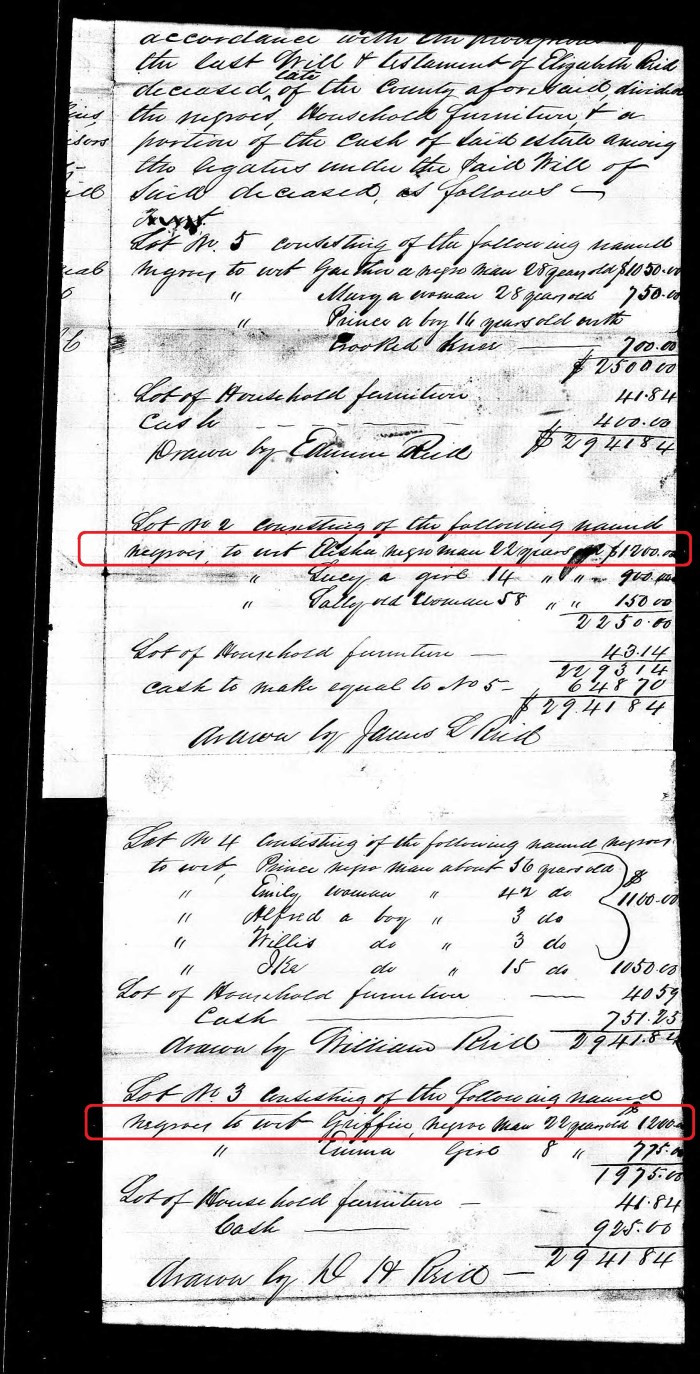 accordance with the
the last Will & testament of Elizabeth Reid
deceased late of the County aforesaid, divided
the negroes, Household furniture & a
portion of the cash of said estate among
the legatees under the said Will of
said deceased, as follows
Lot No. 5 consisting of the following named
negroes to wit Gaither a negro man 28 years old $1050.00
" Mary a woman 28 years old 750.00
" Prince a boy 16 years old with
Crooked knee — 700.00
$2500.00
Lot of Household furniture 41.84
Cash — — 400.00
$2941.84
Drawn by Edmun Reid
Lot No 2 consisting of the following named
negroes, to wit Elisha negro man 22 years $1200.00
" Lucy a girl 14 " " 900.00
" Sally old woman 58 " " 150.00
2250.00
Lot of Household furniture — 43.14
2293.14
cash to make equal to No 5 — 648.70
$2941.84
drawn by James L Reid
Lot No 4 consisting of the following named negroes
to wit, Prince negro man about 36 years old
" Emily woman " 42 do $1100.00
" Alfred a boy " 3 do
" Willis do " 3 do
" Ike do " 15 do 1050.00
Lot of Household furniture — 40.59
Cash — 751.25
drawn by William Reid 2941.84
Lot No. 3 consisting of the following named
negroes to wit Griffin, negro man 22 years old $1200.00
" Emma Girl 8 " 775.00
1975.00
Lot of Household furniture — 41.84
Cash — 925.00
2941.84
drawn by D H Reid —